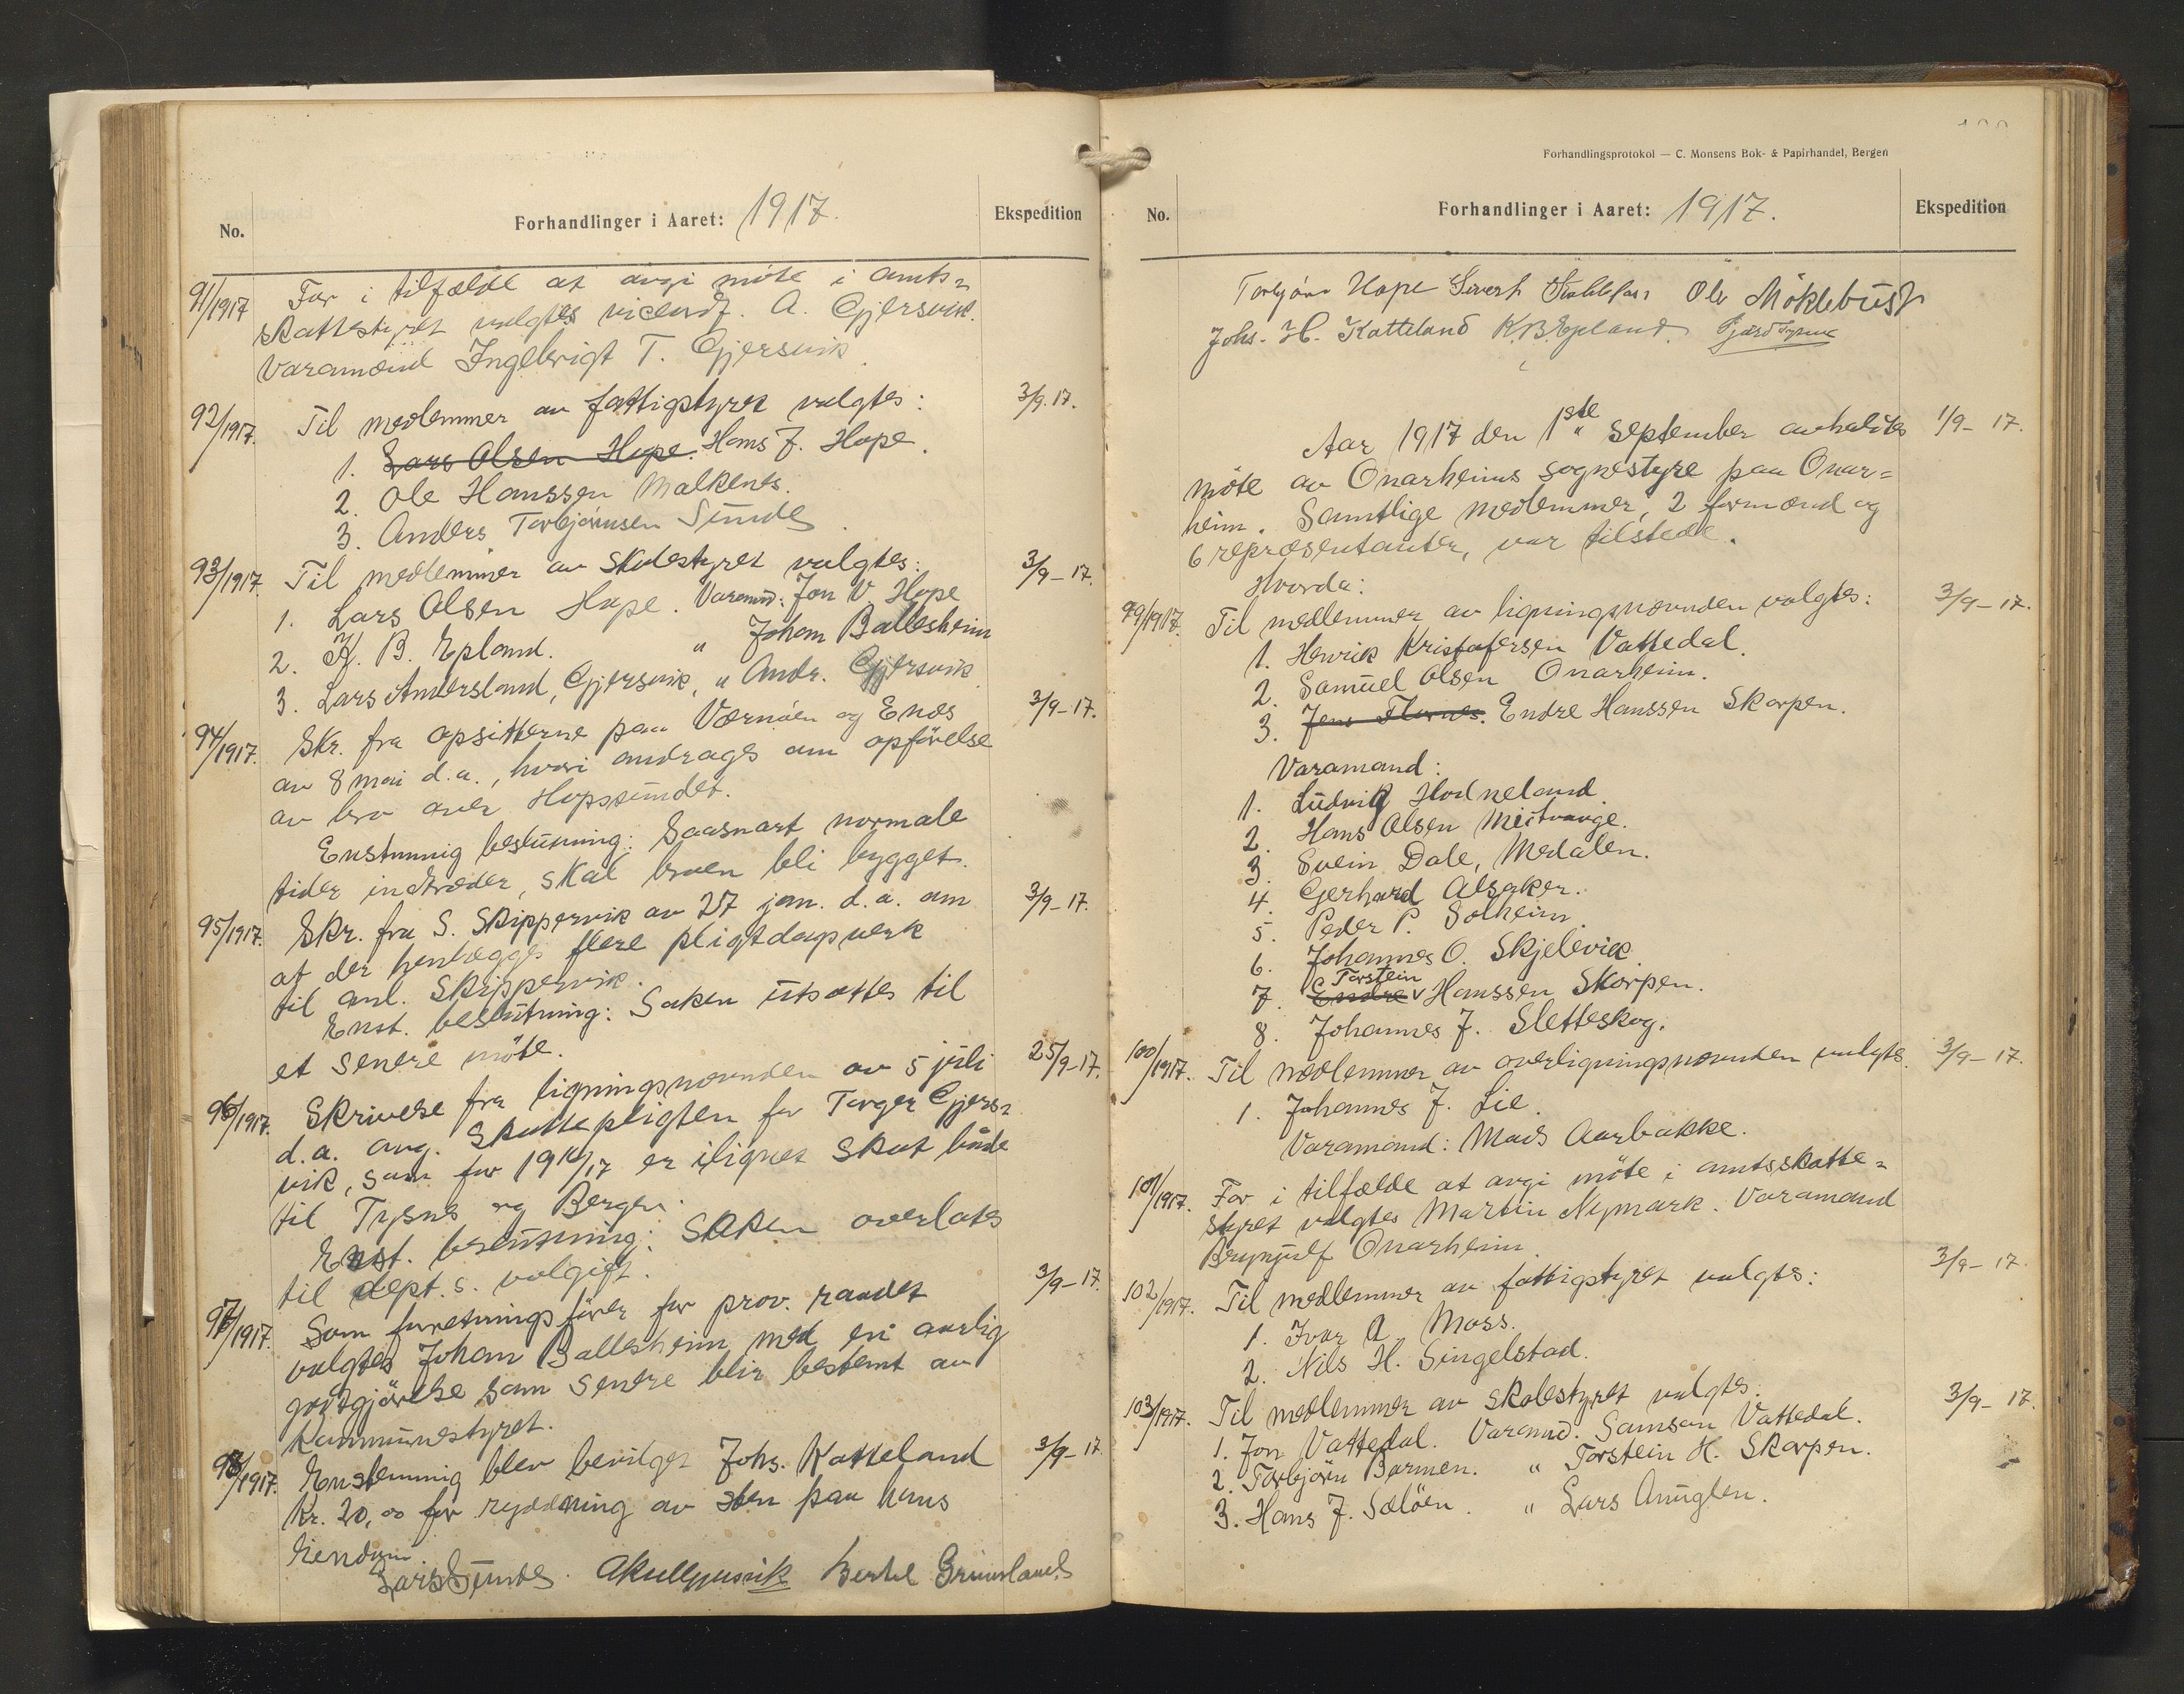 No. Forhandlinger i Aaret: 1917. Ekspedition
91/1917 For i tilfælde at avgi møte i amts=
skattestyret valgtes viceordf. A. Gjersvik.
Varamænd Ingebrigt T. Gjersvik
92/1917. Til medlemmer av fattigstyret valgtes: 3/9. 17.
1. Lars Olsen Hope. Hans J. Hope.
2. Ole Hanssen Malkenes.
3. Anders Torbjörnsen Sunde.
93/1917. Til medlemmer av skolestyret valgtes: 3/9-17.
1. Lars Olsen Hope. Varamd: Jon V. Hope
2. K. B. Epland. " Johan Ballesheim
3. Lars Andersland, Gjersvik, " Andr. Gjersvik
94/1917. Skr. fra opsitterne paa Værnöen og Enæs 3/9-17.
av 8 mai d.a., hvori andrages om opförelse
av bro over Hopssundet.
Enstemmig beslutning: Saasnart normale
tider indtræder, skal broen bli bygget.
95/1917. Skr. fra S. Skippervik av 27 jan. d.a. om 3/9-17.
at der henlægges flere pligtdagsverk
til anl. Skippervik.
Enst. beslutning: Saken utsættes til
et senere möte.
96/1917. Skrivelse fra ligningsnævnden av 5 juli 25/9-17.
d.a. ang. skattepligten for Torger Gjers=
vik, som for 1916/17 er ilignet skat både
til Tysnes og Bergen.
Enst. beslutning: Saken overlates
til dept.s. avlgigt.
97/1917. Som forretningsförer for prov. raadet 3/9-17.
valgtes Johan Ballesheim med en aarlig
godtgjörelse som senere blir bestemt av
kommunestyret.
98/1917. Enstemmig blev bevilget Johs. Katteland 3/9-17.
Kr. 20,00 for ryddning av sten paa hans
eiendom.
Lars Sunde. Bertel Grimsland
Forhandlingsprotokol — C. Monsens Bok- & Papirhandel, Bergen
No. Forhandlinger i Aaret: 1917. Ekspedition
Torbjörn Hope Sivert Ole Möklebust
Johs. H. Katteland K.B. Epland.
Aar 1917 den 1ste september avholdtes 1/9-17.
möte av Onarheims sognestyre paa Onar=
heim. Samtlige medlemmer, 2 formænd og
6 repræsentanter, var tilstede.
Hvorda:
99/1917. Til medlemmer av ligningsnævnden valgtes: 3/9-17.
1. Henrik Kristofersen Vattedal.
2. Samuel Olsen Onarheim.
3. Jens Flornes. Endre Hanssen Skorpen.
Varamænd:
1. Ludvig Hodneland.
2. Hans Olsen Meitvange.
3. Svein Dale, Medalen.
4. Gerhard Alsaker.
5. Peder P. Solheim.
6. Johannes O. Skjelevik.
7. Endre Torstein Hanssen Skorpen.
8. Johannes J. Sletteskog.
100/1917. Til medlemmer av overligningsnævnden valgtes. 3/9-17.
1. Johannes J. Lie.
Varamænd: Mads Aarbakke.
101/1917. For i tilfælde at avgi möte i amtsskatte=
styret valgtes Martin Nymark. Varamænd
Brynjulf Onarheim.
102/1917. Til medlemmer av fattigstyret valgtes: 3/9-17.
1. Ivar A. Moss.
2. Nils H. Singelstad.
103/1917. Til medlemmer av skolestyret valgtes. 3/9-17.
1. Jon Vattedal. Varamd. Samson Vattedal.
2. Torbjörn Barmen. " Torstein H. Skorpen.
3. Hans J.Ælöen. " Lars Anuglen.